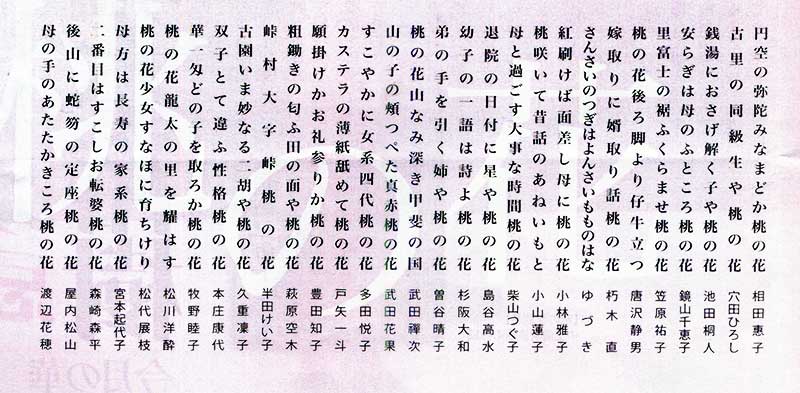 円空の弥陀みなまどか桃の花 相田惠子
古里の同級生や桃の花 穴田ひろし
銭湯におさげ解く子や桃の花 池田桐人
安らぎは母のふところ桃の花 鏡山千恵子
里富士の裾ふくらませ桃の花 笠原祐子
桃の花後ろ脚より仔牛立つ 唐沢静男
嫁取りに婿取り話桃の花 朽木直
さんさいのつぎはよんさいもものはな ゆづき
紅刷けば面差し母に桃の花 小林雅子
桃咲いて昔話のあねいもと 小山蓮子
母と過ごす大事な時間桃の花 柴山つぐ子
退院の日付に星や桃の花 島谷高水
幼子の一語は詩よ桃の花 杉阪大和
弟の手を引く姉や桃の花 曽谷晴子
桃の花山なみ深き甲斐の国 武田禪次
山の子の頬つぺた真赤桃の花 武田花果
すこやかに女系四代桃の花 多田悦子
カステラの薄紙舐めて桃の花 戸矢一斗
願掛けかお礼参りか桃の花 豊田知子
粗鋤きの匂ふ田の面や桃の花 萩原空木
峠村大字峠桃の花 半田けい子
古園いま妙なる二胡や桃の花 久重凜子
双子とて違ふ性格桃の花 本庄康代
華一匁どの子を取ろか桃の花 牧野睦子
桃の花龍太の里を耀はす 松川洋酔
桃の花少女すなほに育ちけり 松代展枝
母方は長寿の家系桃の花 宮本起代子
二番目はすこしお転婆桃の花 森崎森平
後山に蛇笏の定座桃の花 屋内松山
母の手のあたたかきころ桃の花 渡辺花穂